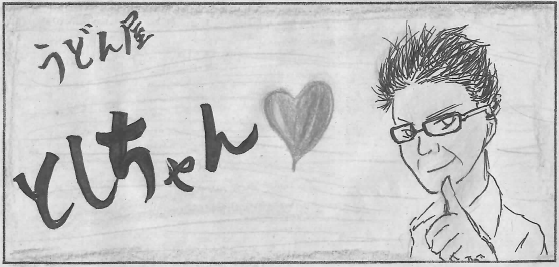 うどん屋
としちゃん